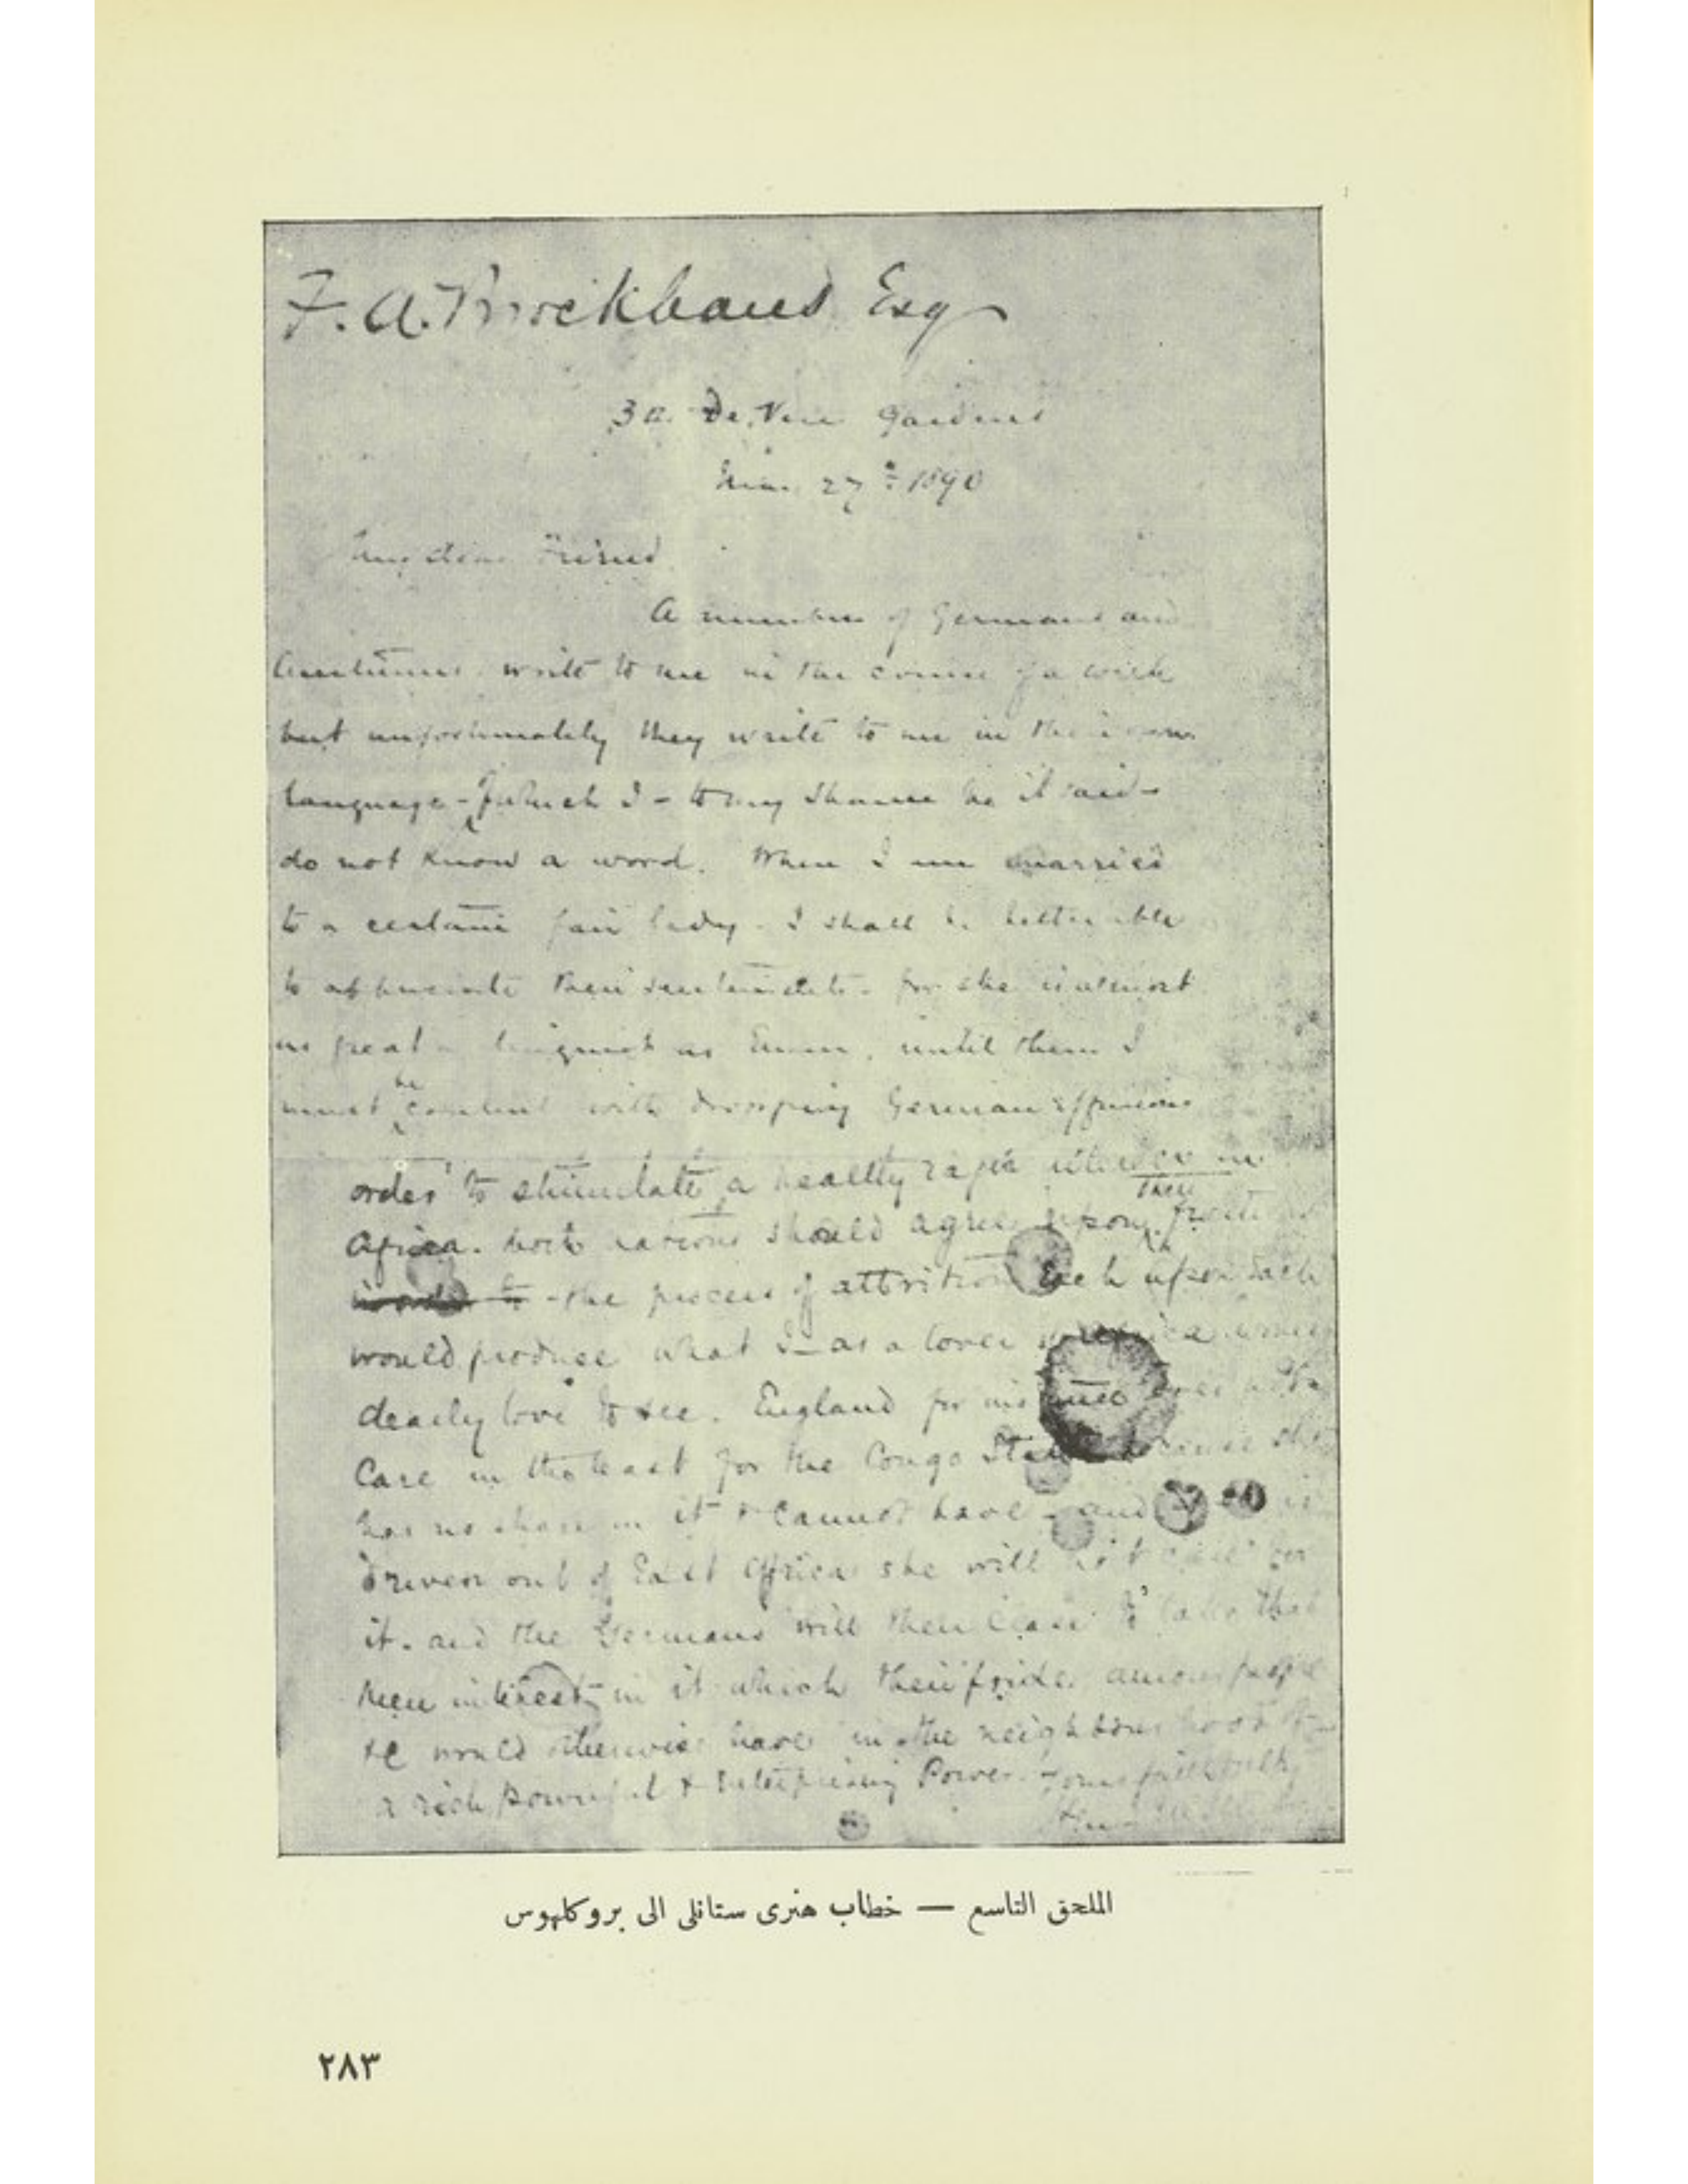 F. A. Brockhaus Esq
De Vere Gardens
27th 1890
My dear Friend
A number of Germans and
Austrians write to me in the course of a week
but unfortunately they write to me in their own
language - of which I - to my shame be it said -
do not know a word. When I am married
to a certain fair lady - I shall be better able
to appreciate their sentiments - for she is almost
as great a linguist as Emin, until then I
must be content with dropping German effusions
order to stimulate a healthy rapid in
Africa. both nations should agree upon their
the process of attrition each upon each
would produce what I - as a lover of Africa
dearly love to see. England for instance does not
Care in the least for the Congo State because she
has no share in it & cannot have - and if she is
driven out of East Africa she will not care for
it. and the Germans will then cease to take that
keen interest in it which their pride amour propre
&c would otherwise have in the neighbourhood of
a rich powerful & enterprising Power. Yours faithfully
الملحق التاسع — خطاب هنرى ستانلى الى بروكلهوس
٢٨٣